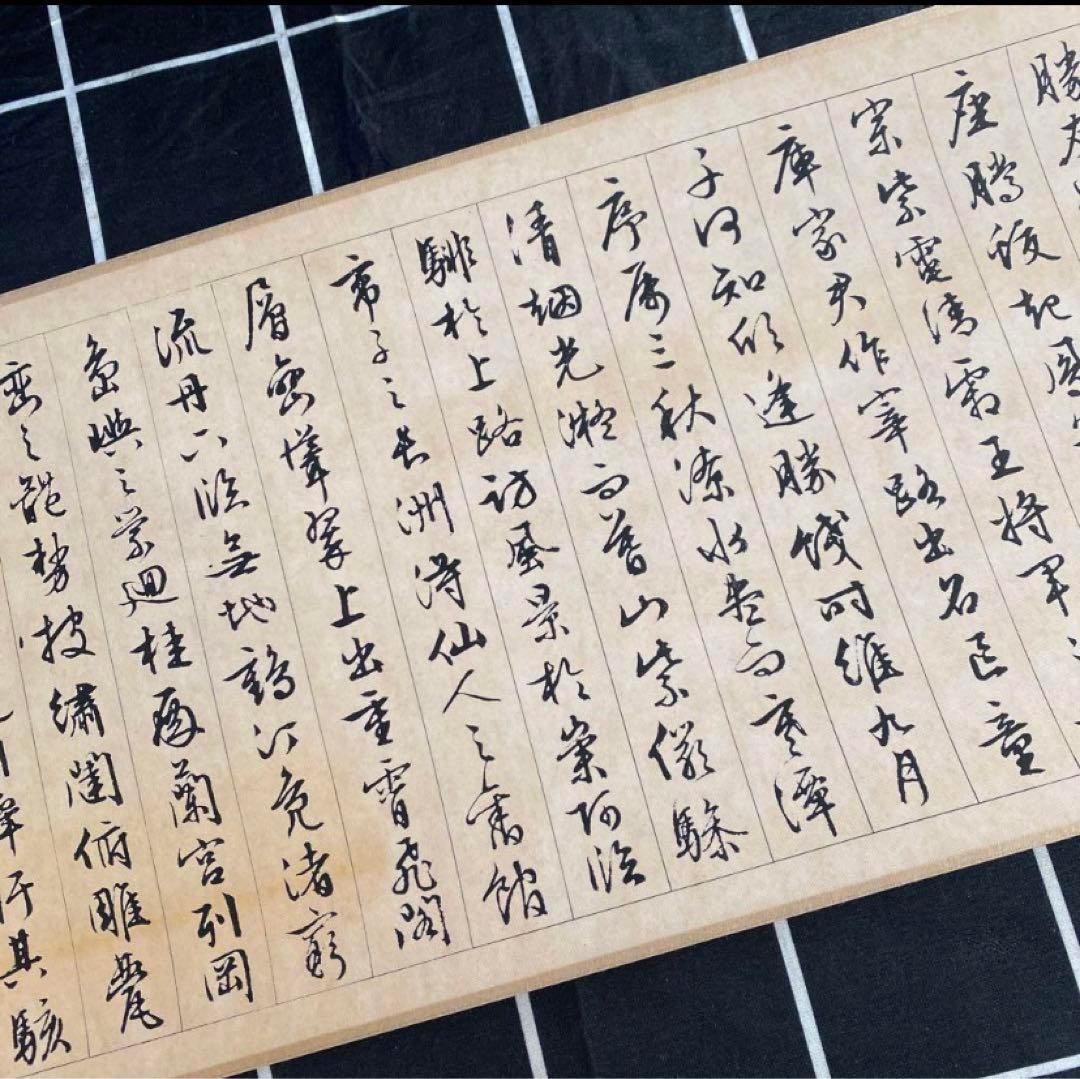 勝友
座騰蛟起鳳
宗紫電清霜王將軍之
庫家君作宰路出名區童
子何知躬逢勝餞時維九月
序屬三秋潦水盡而寒潭
清烟光凝而暮山紫儼驂
騑於上路訪風景於崇阿臨
帝子之長洲得仙人之舊館
層巒聳翠上出重霄飛閣
流丹下臨無地鶴汀鳧渚窮
島嶼之縈迴桂殿蘭宮列岡
巒之體勢披繡闥俯雕甍
澤盱其駭